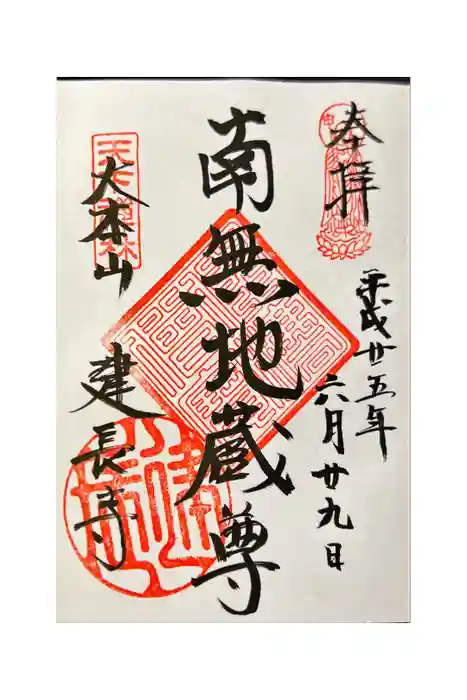 奉拝
平成廿五年
六月廿九日
南無地蔵尊
大本山
建長寺
天下禅林